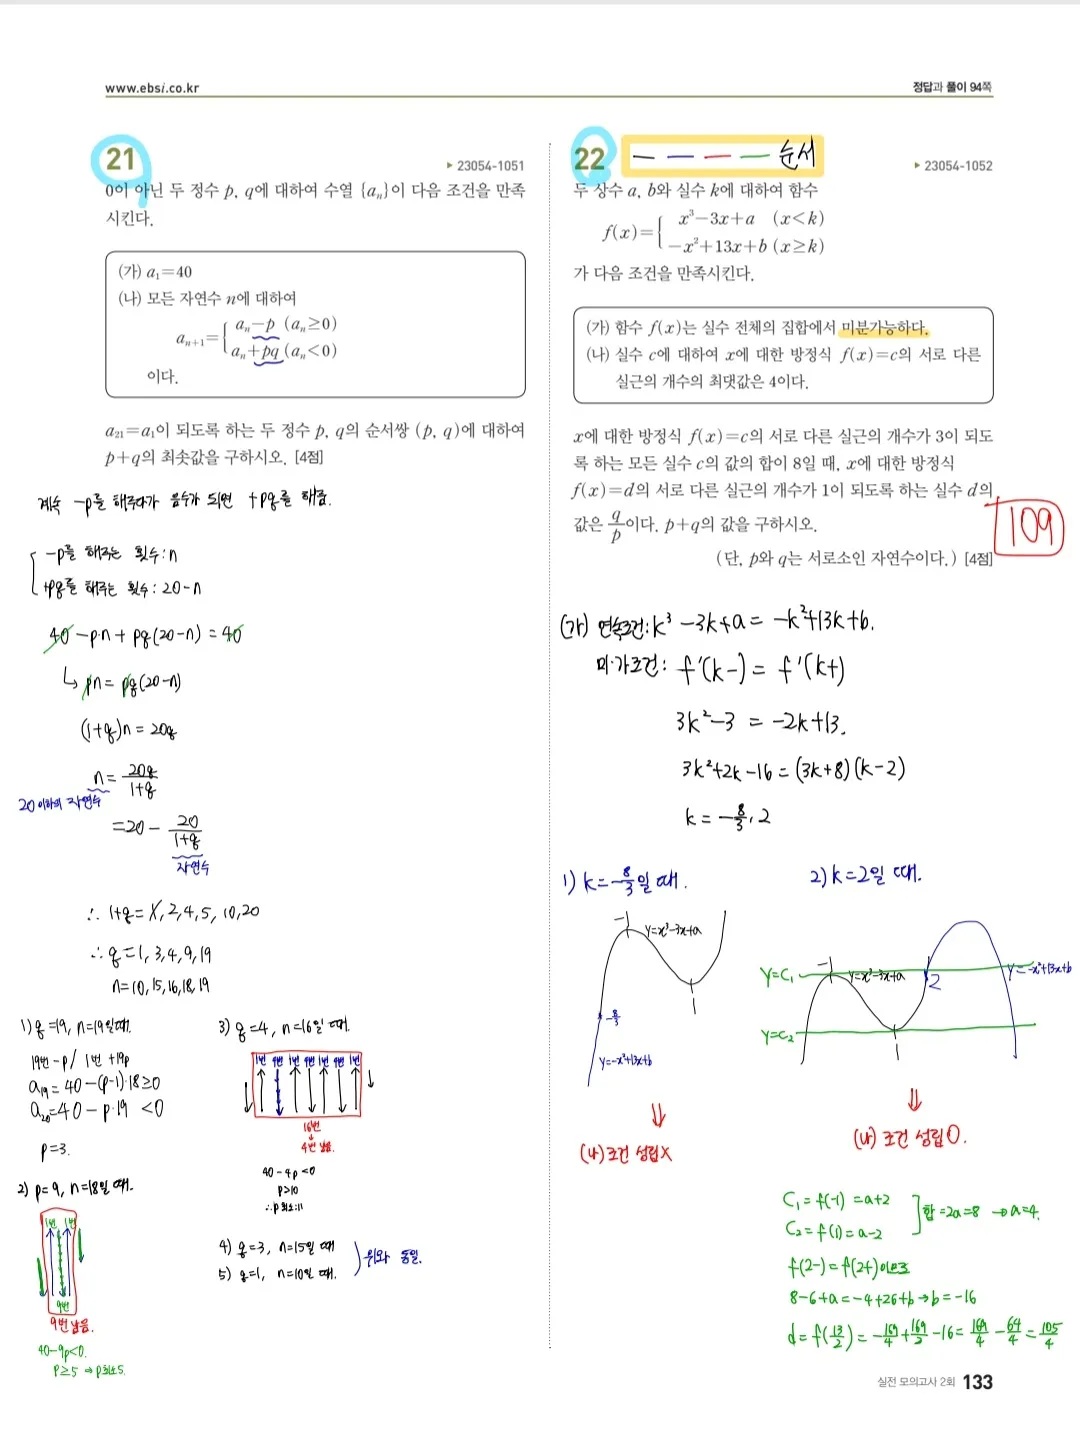 www.ebsi.co.kr
정답과 풀이 94쪽
21
▶ 23054-1051
0이 아닌 두 정수 p, q에 대하여 수열 {aₙ}이 다음 조건을 만족
시킨다.
(가) a₁=40
(나) 모든 자연수 n에 대하여
aₙ₊₁={ aₙ-p (aₙ≥0)
aₙ+pq (aₙ<0)
이다.
a₂₁=a₁이 되도록 하는 두 정수 p, q의 순서쌍 (p, q)에 대하여
p+q의 최솟값을 구하시오. [4점]
계속 -p를 해주다가 음수가 되면 +pq를 해줌.
-p를 해주는 횟수: n
+pq를 해주는 횟수: 20-n
40-p·n+pq(20-n)=40
↳ pn=pq(20-n)
(1+q)n=20q
n=20q/(1+q)
20이하의 자연수
=20-20/(1+q)
자연수
∴ 1+q=1, 2, 4, 5, 10, 20
∴ q=1, 3, 4, 9, 19
n=10, 15, 16, 18, 19
1) q=19, n=19일때.
19번 -p / 1번 +19p
a₁₉=40-(p-1)·18≥0
a₂₀=40-p·19 <0
p=3.
2) p=9, n=18일때.
1번 1번
9번
9번 남음.
40-9p<0.
p≥5 ⇒ p최소5.
3) q=4, n=16일 때.
1번 4번 1번 4번 1번 4번 1번
16번
↓
4번 남음.
40-4p<0
p>10
∴p 최소:11
4) q=3, n=15일 때
5) q=1, n=10일 때.
위와 동일.
22
순서
▶ 23054-1052
두 상수 a, b와 실수 k에 대하여 함수
f(x)={ x³-3x+a (x<k)
-x²+13x+b (x≥k)
가 다음 조건을 만족시킨다.
(가) 함수 f(x)는 실수 전체의 집합에서 미분가능하다.
(나) 실수 c에 대하여 x에 대한 방정식 f(x)=c의 서로 다른
실근의 개수의 최댓값은 4이다.
x에 대한 방정식 f(x)=c의 서로 다른 실근의 개수가 3이 되도
록 하는 모든 실수 c의 값의 합이 8일 때, x에 대한 방정식
f(x)=d의 서로 다른 실근의 개수가 1이 되도록 하는 실수 d의
값은 q/p이다. p+q의 값을 구하시오.
(단, p와 q는 서로소인 자연수이다.) [4점]
109
(가) 연속조건: k³-3k+a=-k²+13k+b.
미·가조건: f'(k-)=f'(k+)
3k²-3=-2k+13.
3k²+2k-16=(3k+8)(k-2)
k=-8/3, 2
1) k=-8/3일 때.
-1
y=x³-3x+a
1
-8/3
y=-x²+13x+b
⇓
(나) 조건 성립X
2) k=2일 때.
y=C₁
-1
y=x³-3x+a
2
y=-x²+13x+b
y=C₂
1
⇓
(나) 조건 성립O.
C₁=f(-1)=a+2
C₂=f(1)=a-2
합=2a=8 →a=4.
f(2-)=f(2+)이므로
8-6+a=-4+26+b→b=-16
d=f(13/2)=-169/4+169/2-16=169/4-64/4=105/4
실전 모의고사 2회 133